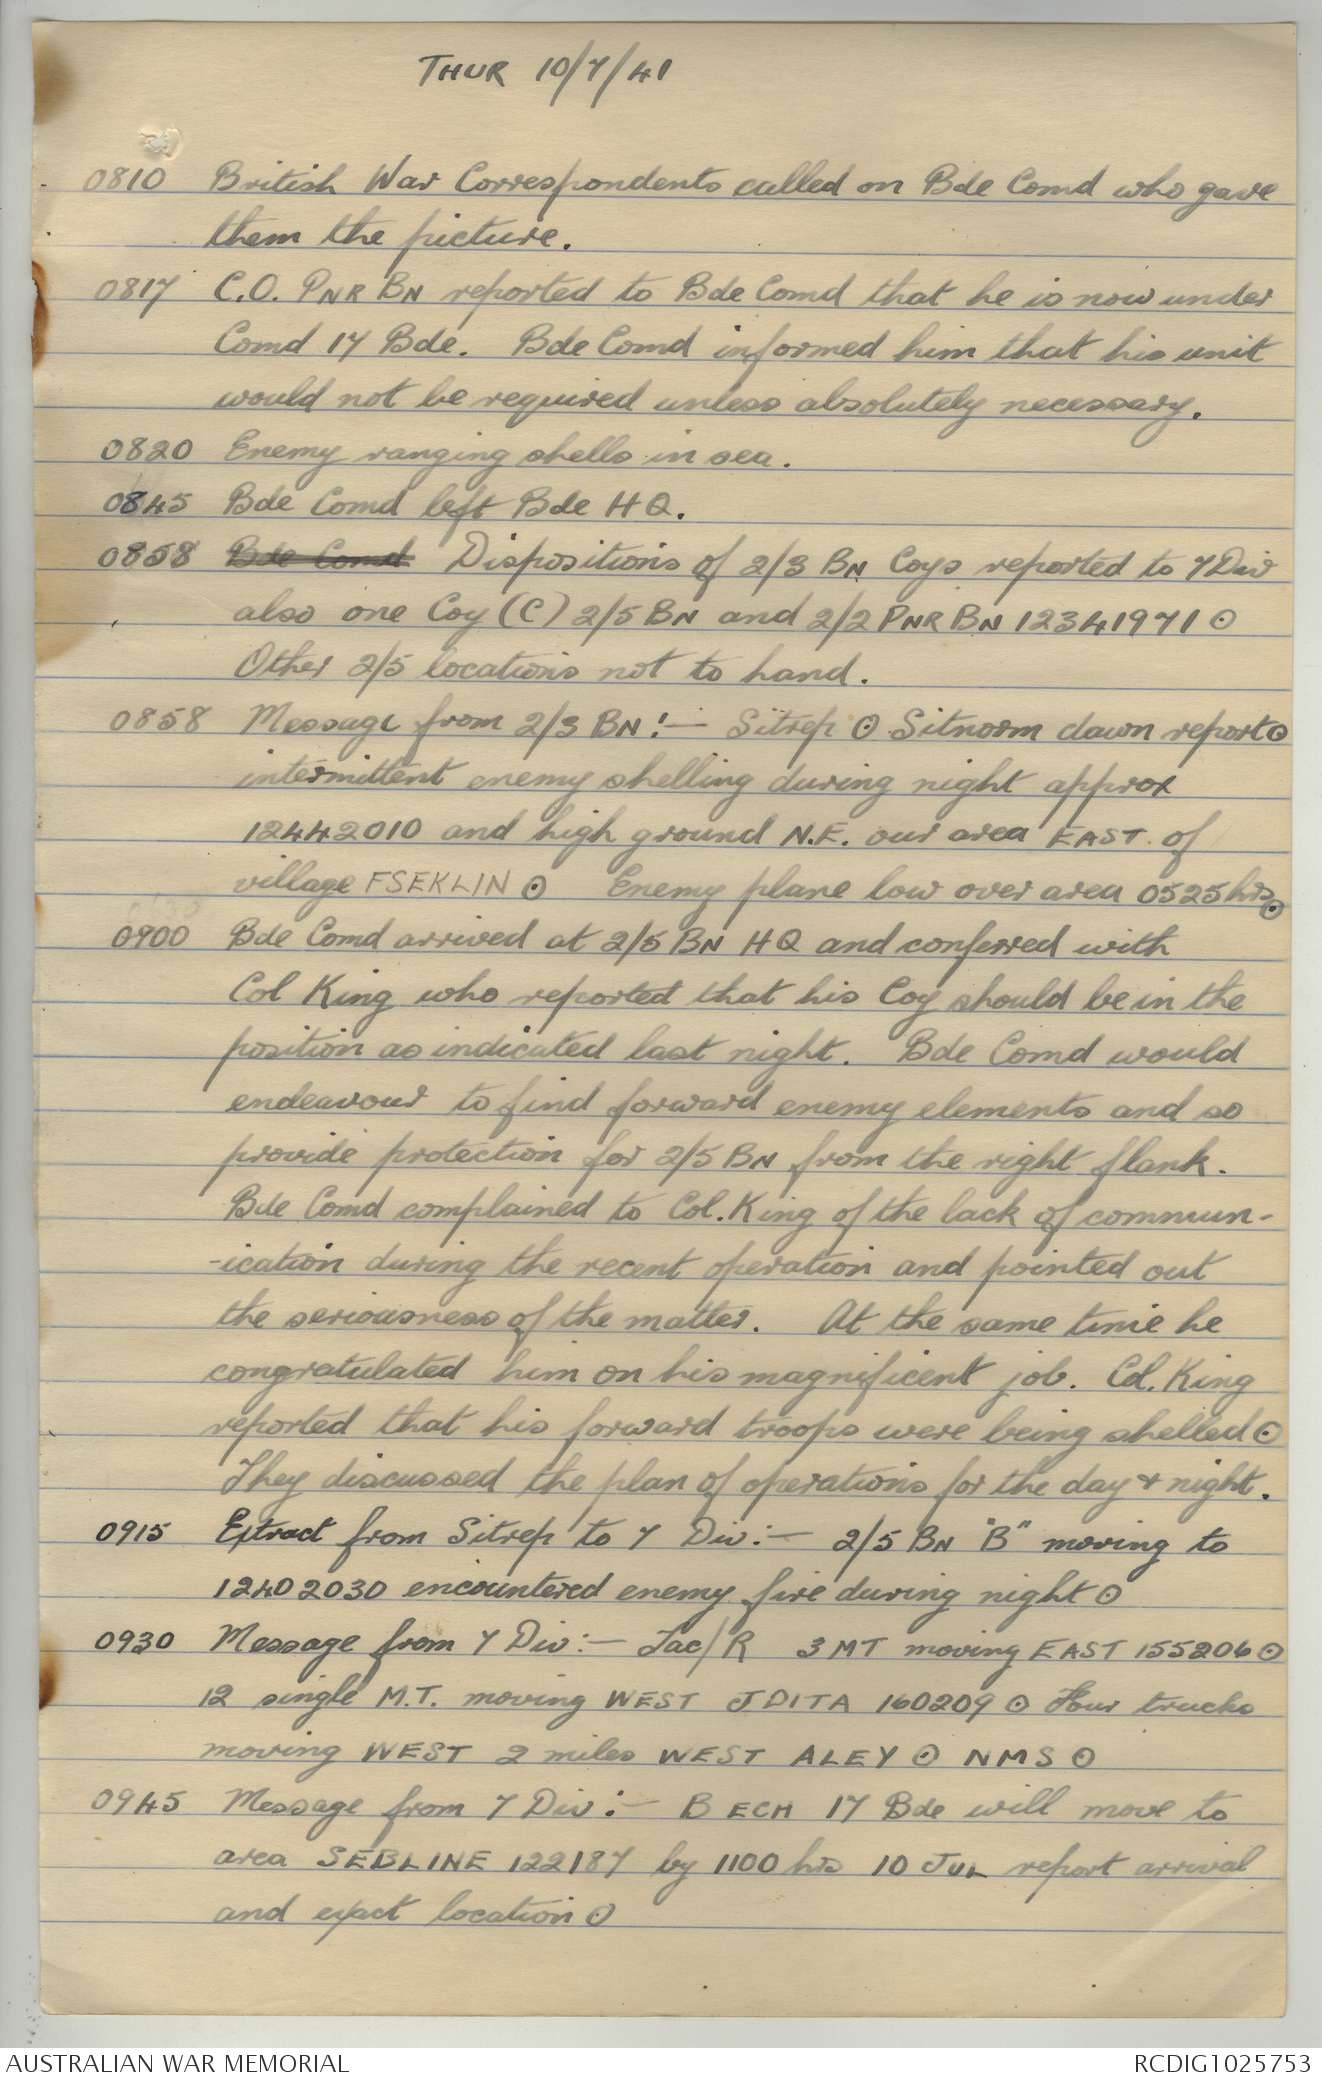 THUR 10/7/41
0810 British War Correspondents called on Bde Comd who gave
them the picture.
0817 C.O. PNR BN reported to Bde Comd that he is now under
Comd 17 Bde. Bde Comd informed him that his unit
would not be required unless absolutely necessary.
0820 Enemy ranging shells in sea.
0845 Bde Comd left Bde HQ.
0858 Bde Comd Dispositions of 2/3 BN Coys reported to 7 Div
also one Coy (C) 2/5 BN and 2/2 PNR BN 12341971 ⊙
Other 2/5 locations not to hand.
0858 Message from 2/3 BN:- Sitrep ⊙ Sitnorm dawn report ⊙
intermittent enemy shelling during night approx
12442010 and high ground N.E. our area EAST of
village FSEKLIN ⊙ Enemy plane low over area 0525 hrs ⊙
0900 Bde Comd arrived at 2/5 BN HQ and conferred with
Col King who reported that his Coy should be in the
position as indicated last night. Bde Comd would
endeavour to find forward enemy elements and so
provide protection for 2/5 BN from the right flank.
Bde Comd complained to Col. King of the lack of commun-
-ication during the recent operation and pointed out
the seriousness of the matter. At the same time he
congratulated him on his magnificent job. Col. King
reported that his forward troops were being shelled ⊙
They discussed the plan of operations for the day & night.
0915 Extract from Sitrep to 7 Div:- 2/5 BN "B" moving to
12402030 encountered enemy fire during night ⊙
0930 Message from 7 Div:- Tac/R 3 MT moving EAST 155206 ⊙
12 single M.T. moving WEST JDITA 160209 ⊙ Four trucks
moving WEST 2 miles WEST ALEY ⊙ NMS ⊙
0945 Message from 7 Div:- B ECH 17 Bde will move to
area SEBLINE 122187 by 1100 hrs 10 JUL report arrival
and exact location ⊙
AUSTRALIAN WAR MEMORIAL
RCDIG1025753